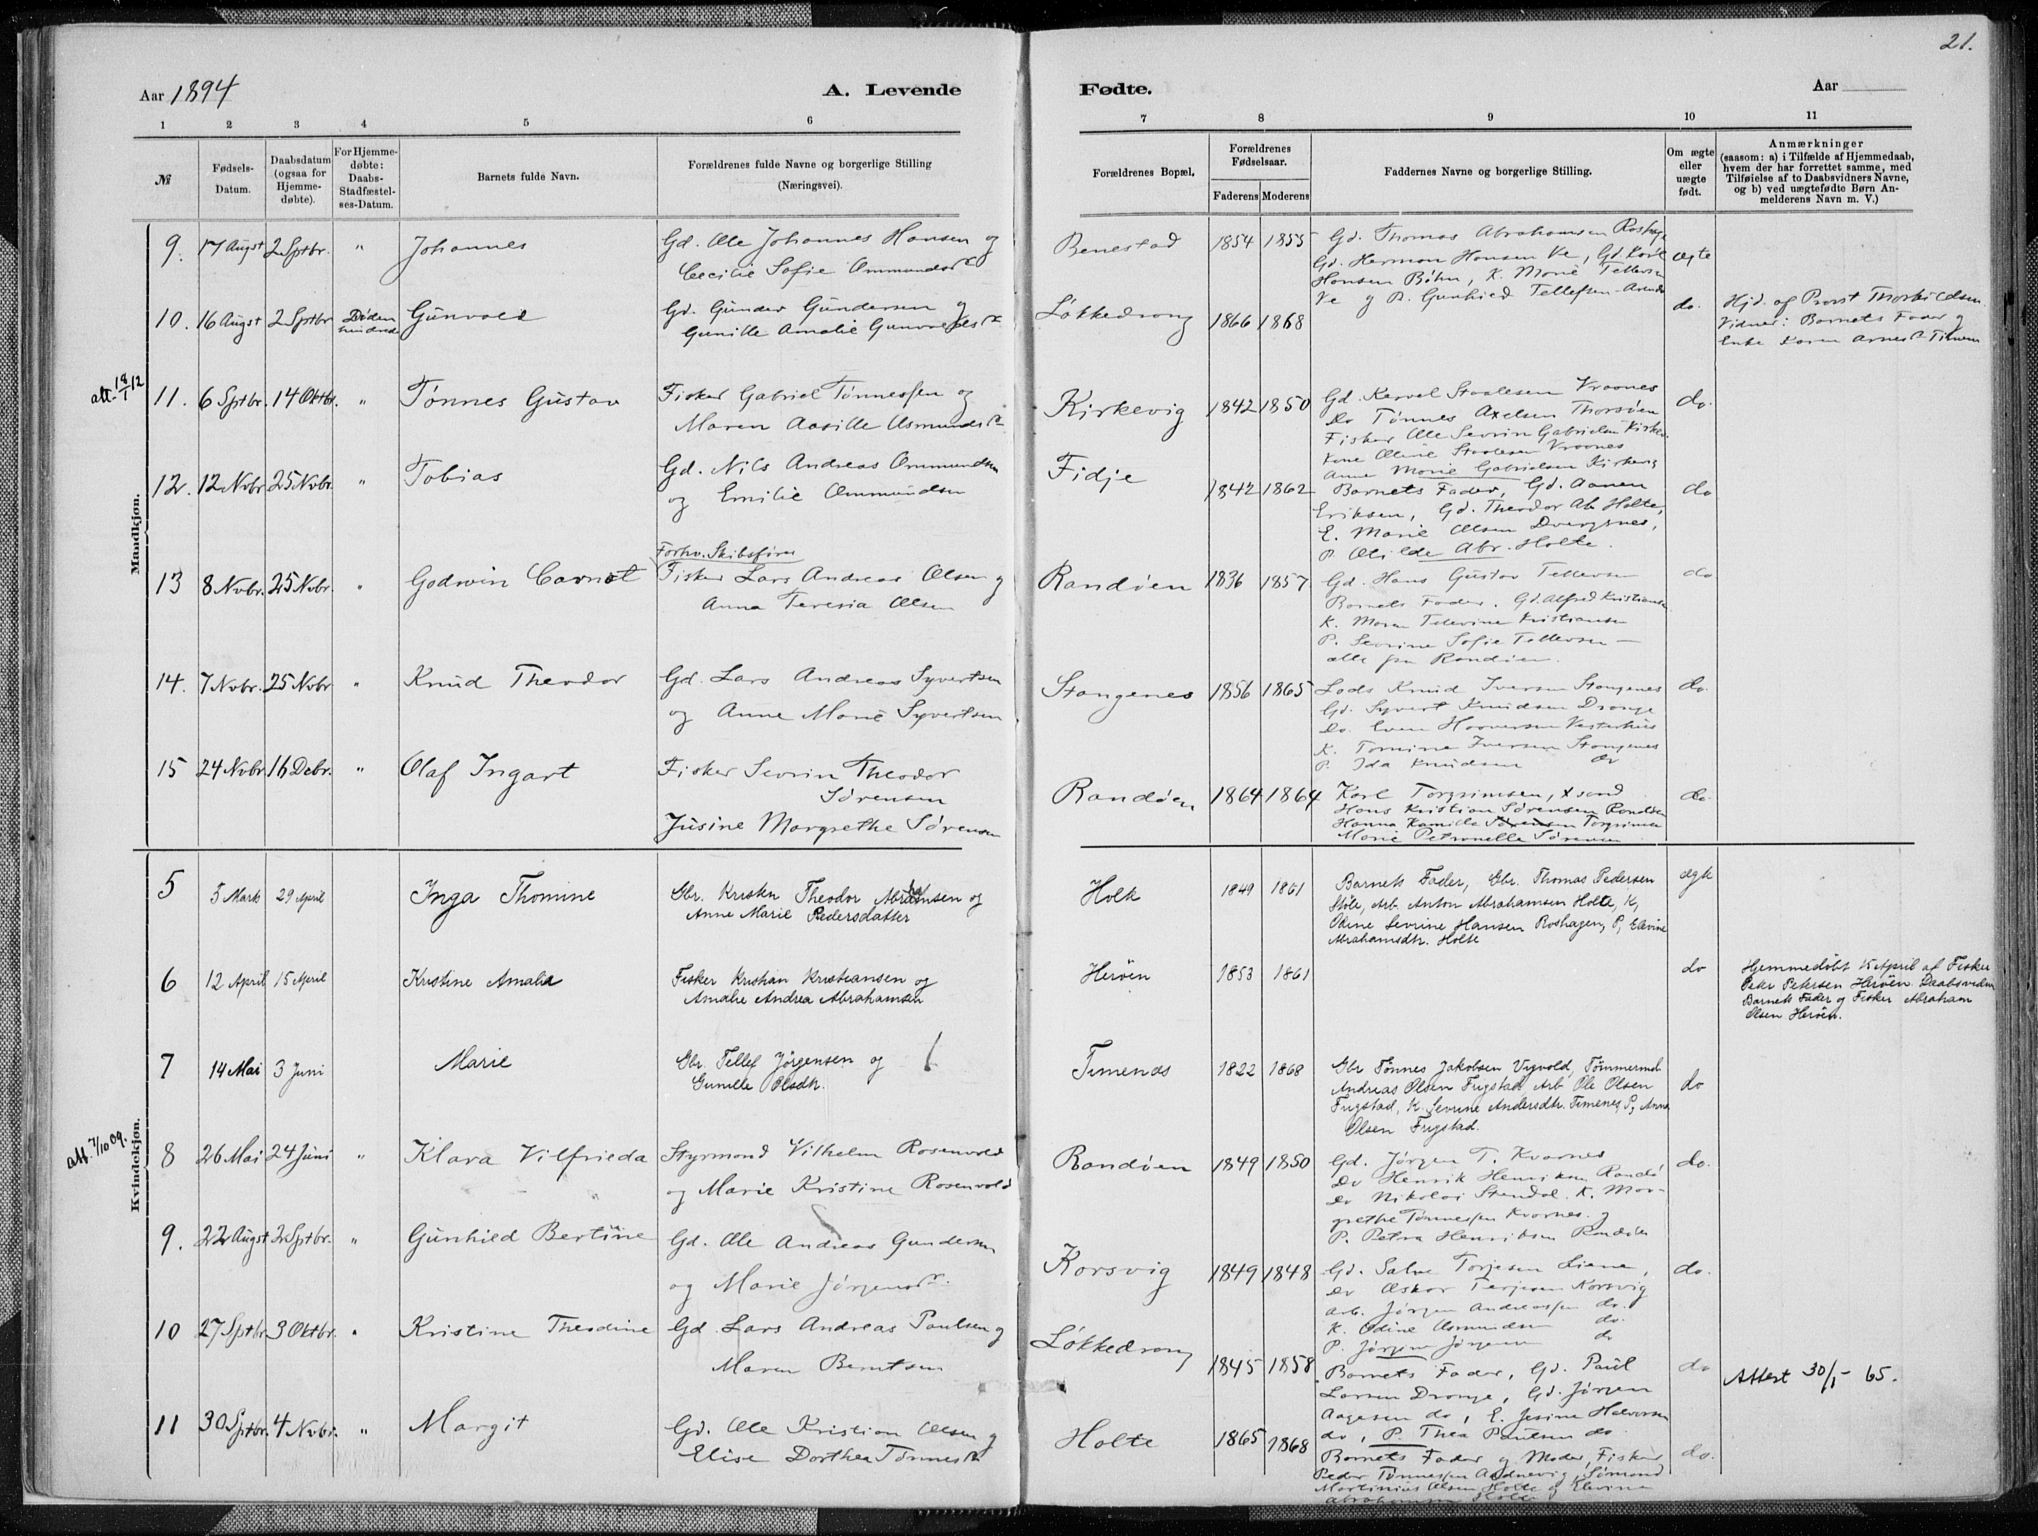 21.
Aar 1894
A. Levende
Fødte.
Aar
1 2 3 4 5 6 7 8 9 10 11
№
Fødsels-Datum.
Daabsdatum (ogsaa for Hjemme-døbte).
For Hjemme-døbte: Daabs-Stadfæstel-ses-Datum.
Barnets fulde Navn.
Forældrenes fulde Navne og borgerlige Stilling
(Næringsvei).
Forældrenes Bopæl.
Forældrenes Fødselsaar.
Faderens Moderens
Faddernes Navne og borgerlige Stilling.
Om ægte eller uægte født.
Anmærkninger
(saasom: a) i Tilfælde af Hjemmedaab, hvem der har forrettet samme, med Tilføielse af to Daabsvidners Navne, og b) ved uægtefødte Børn An-melderens Navn m. V.)
Mandkjøn.
9. 17 Augst 2 Sptbr. " Johannes Gd. Ole Johannes Hansen og
Cecilie Sofie Ommundsd.
Benestad 1854 1855 Gd. Thomas Abrahamsen
Gd. Herman Hansen Ve, Gd. Karl
Hansen Bøhn, K. Marie Tellevsen
Ve og P. Gunhild Tellefsen
ægte
10. 16 Augst 2 Sptbr Gunvald Gd. Gunder Gundersen og
Gunille Amalie
Løkkedrong 1866 1868 do.
Hjd. af Provst Thorkildsen.
Vidner: Barnets Fader og
Enke Karen
att. 18/1 12
11. 6 Sptbr. 14 Oktbr. " Tønnes Gustav Fisker Gabriel Tønnessen og
Maren Aasille Asmundsd.
Kirkevig 1842 1850 Gd. Kervel Staalesen Vraanes
do Tønnes Axelsen Thorsøen
Fisker Ole Sevrin Gabrielsen
Kone Oline Staalesen Vraanes
Anne Marie Gabrielsen Kirkevig
do.
12. 12 Nvbr. 25 Nvbr. " Tobias Gd. Nils Andreas Ommundsen
og Emilie Ommundsen
Fidje 1842 1862 Barnets Fader, Gd. Aanen
Eriksen, Gd. Theodor Ab. Holte,
E. Marie Olsen Dvergsnes,
P. Olilde Abr. Holte.
do
Forhv. Skibsfører
13 8 Nvbr. 25 Nvbr. " Godwin Carnot Fisker Lars Andreas Olsen og
Anna Teresia Olsen
Randøen 1836 1857 Gd. Hans Gustav Tellevsen
Barnets Fader. Gd. Alfred Kristiansen
K. Maren Televine Kristiansen
P. Sevrine Sofie Tellevsen —
alle fra Randøen.
do
14. 7 Nvbr. 25 Nvbr " Knud Theodor Gd. Lars Andreas Syvertsen
og Anne Marie Syvertsen
Stangenes 1856 1865 Lods Knud Iversen Stangenes
Gd. Syvert Knudsen Drange
do. Even Haaversen Vesterhus
K. Tomine Iversen Stangenes
P. Ida Knudsen do
do.
15 24 Nvbr. 16 Debr. " Olaf Ingart Fisker Sevrin Theodor
Sørensen
Jusine Margrethe Sørensen
Randøen 1864 1864 Karl Torgrimsen, Xsand
Hans Kristian Sørensen Randøen
Hanna Kamilla Sørensen Torgrimsen
Marie Petronelle Sørensen
do.
Kvindekjøn.
5 5 Marts 29 April Inga Thomine Gbr. Kristen Theodor Abrahamsen og
Anne Marie Pedersdatter
Holte 1849 1861 Barnets Fader, Gbr. Thomas Pedersen
Stole, Arb. Anton Abrahamsen Holte, K,
Odine Sevrine Hansen Roshagen, P, Elevine
Abrahamsdtr. Holte
ægte
6 12 April 15 April Kristine Amalie Fisker Kristian Kristiansen og
Amalie Andrea Abrahamsen
Herøen 1853 1861 do
Hjemmedøbt 15 April af Fisker
Peter Petersen Herøen. Daabsvidner
Barnets Fader og Fisker Abraham
Olsen Herøen.
7 14 Mai 3 Juni Marie Gbr. Tellef Jørgensen og
Gunille Olsdtr.
Timenes 1822 1868 Gbr Tønnes Jakobsen Vigvold, Tømmermd.
Andreas Olsen Frigstad Arb. Ole Olsen
Frigstad, K. Sevrine Andersdtr. Timenes, P, Anna
Olsen Frigstad.
do
att. 7/10 09.
8 26 Mai 24 Juni " Klara Vilfrieda Styrmand Vilhelm Rosenvold
og Marie Kristine Rosenvold
Randøen 1849 1850 Gd. Jørgen T. Kvarnes
do Henrik Henriksen Randø
do Nikolai Stendal. K. Mar-
grethe Tønnessen Kvarnes. og
P. Petra Henriksen Randøen
do.
9. 22 Augst 2 Sptbr. " Gunhild Bertine Gd. Ole Andreas Gundersen
og Marie Jørgensd.
Korsvig 1849 1848 Gd. Salve Torjesen Liane,
do Oskar Terjesen Korsvig
Arb. Jørgen Andreassen do.
K. Odine Asmundsen do.
P. Jørgine Jørgensen do
do.
10 27 Sptbr. 3 Oktbr. " Kristine Theodine Gd. Lars Andreas Paulsen og
Maren Berntsen
Løkkedrong 1845 1858 Barnets Fader, Gd. Paul
Larsen Drange, Gd. Jørgen
Aagesen do, E. Jesine Halvorsen
do, P. Thea Paulsen do.
do
Attest 30/1 - 65.
11 30 Sptbr. 4 Nvbr. " Margit Gd. Ole Kristian Olsen og
Elise Dorthea Tønnesd.
Holte 1865 1868 Barnets Fader og Moder, Fisker
Peder Tønnessen Sømand
Martinius Olsen Holte og Elevine
Abrahamsen Holte
do.